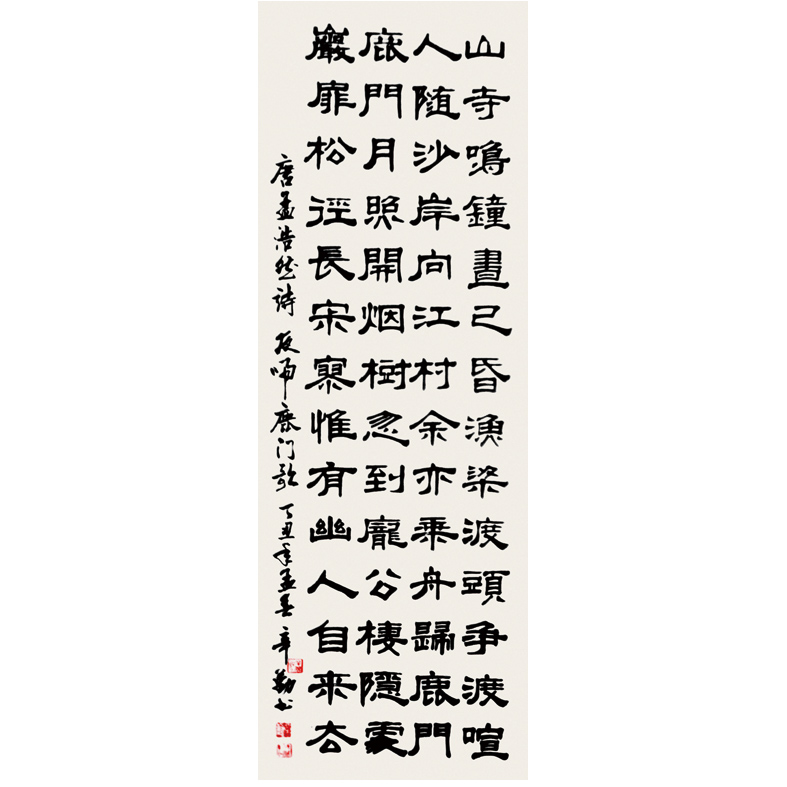 山寺鳴鐘晝已昏漁梁渡頭爭渡喧
人随沙岸向江村余亦乘舟歸鹿門
鹿門月照開烟樹忽到龐公棲隱處
巖扉松徑長宋寥惟有幽人自来去
唐孟浩然詩 夜歸鹿门歌 丁丑年孟春 辛勤书